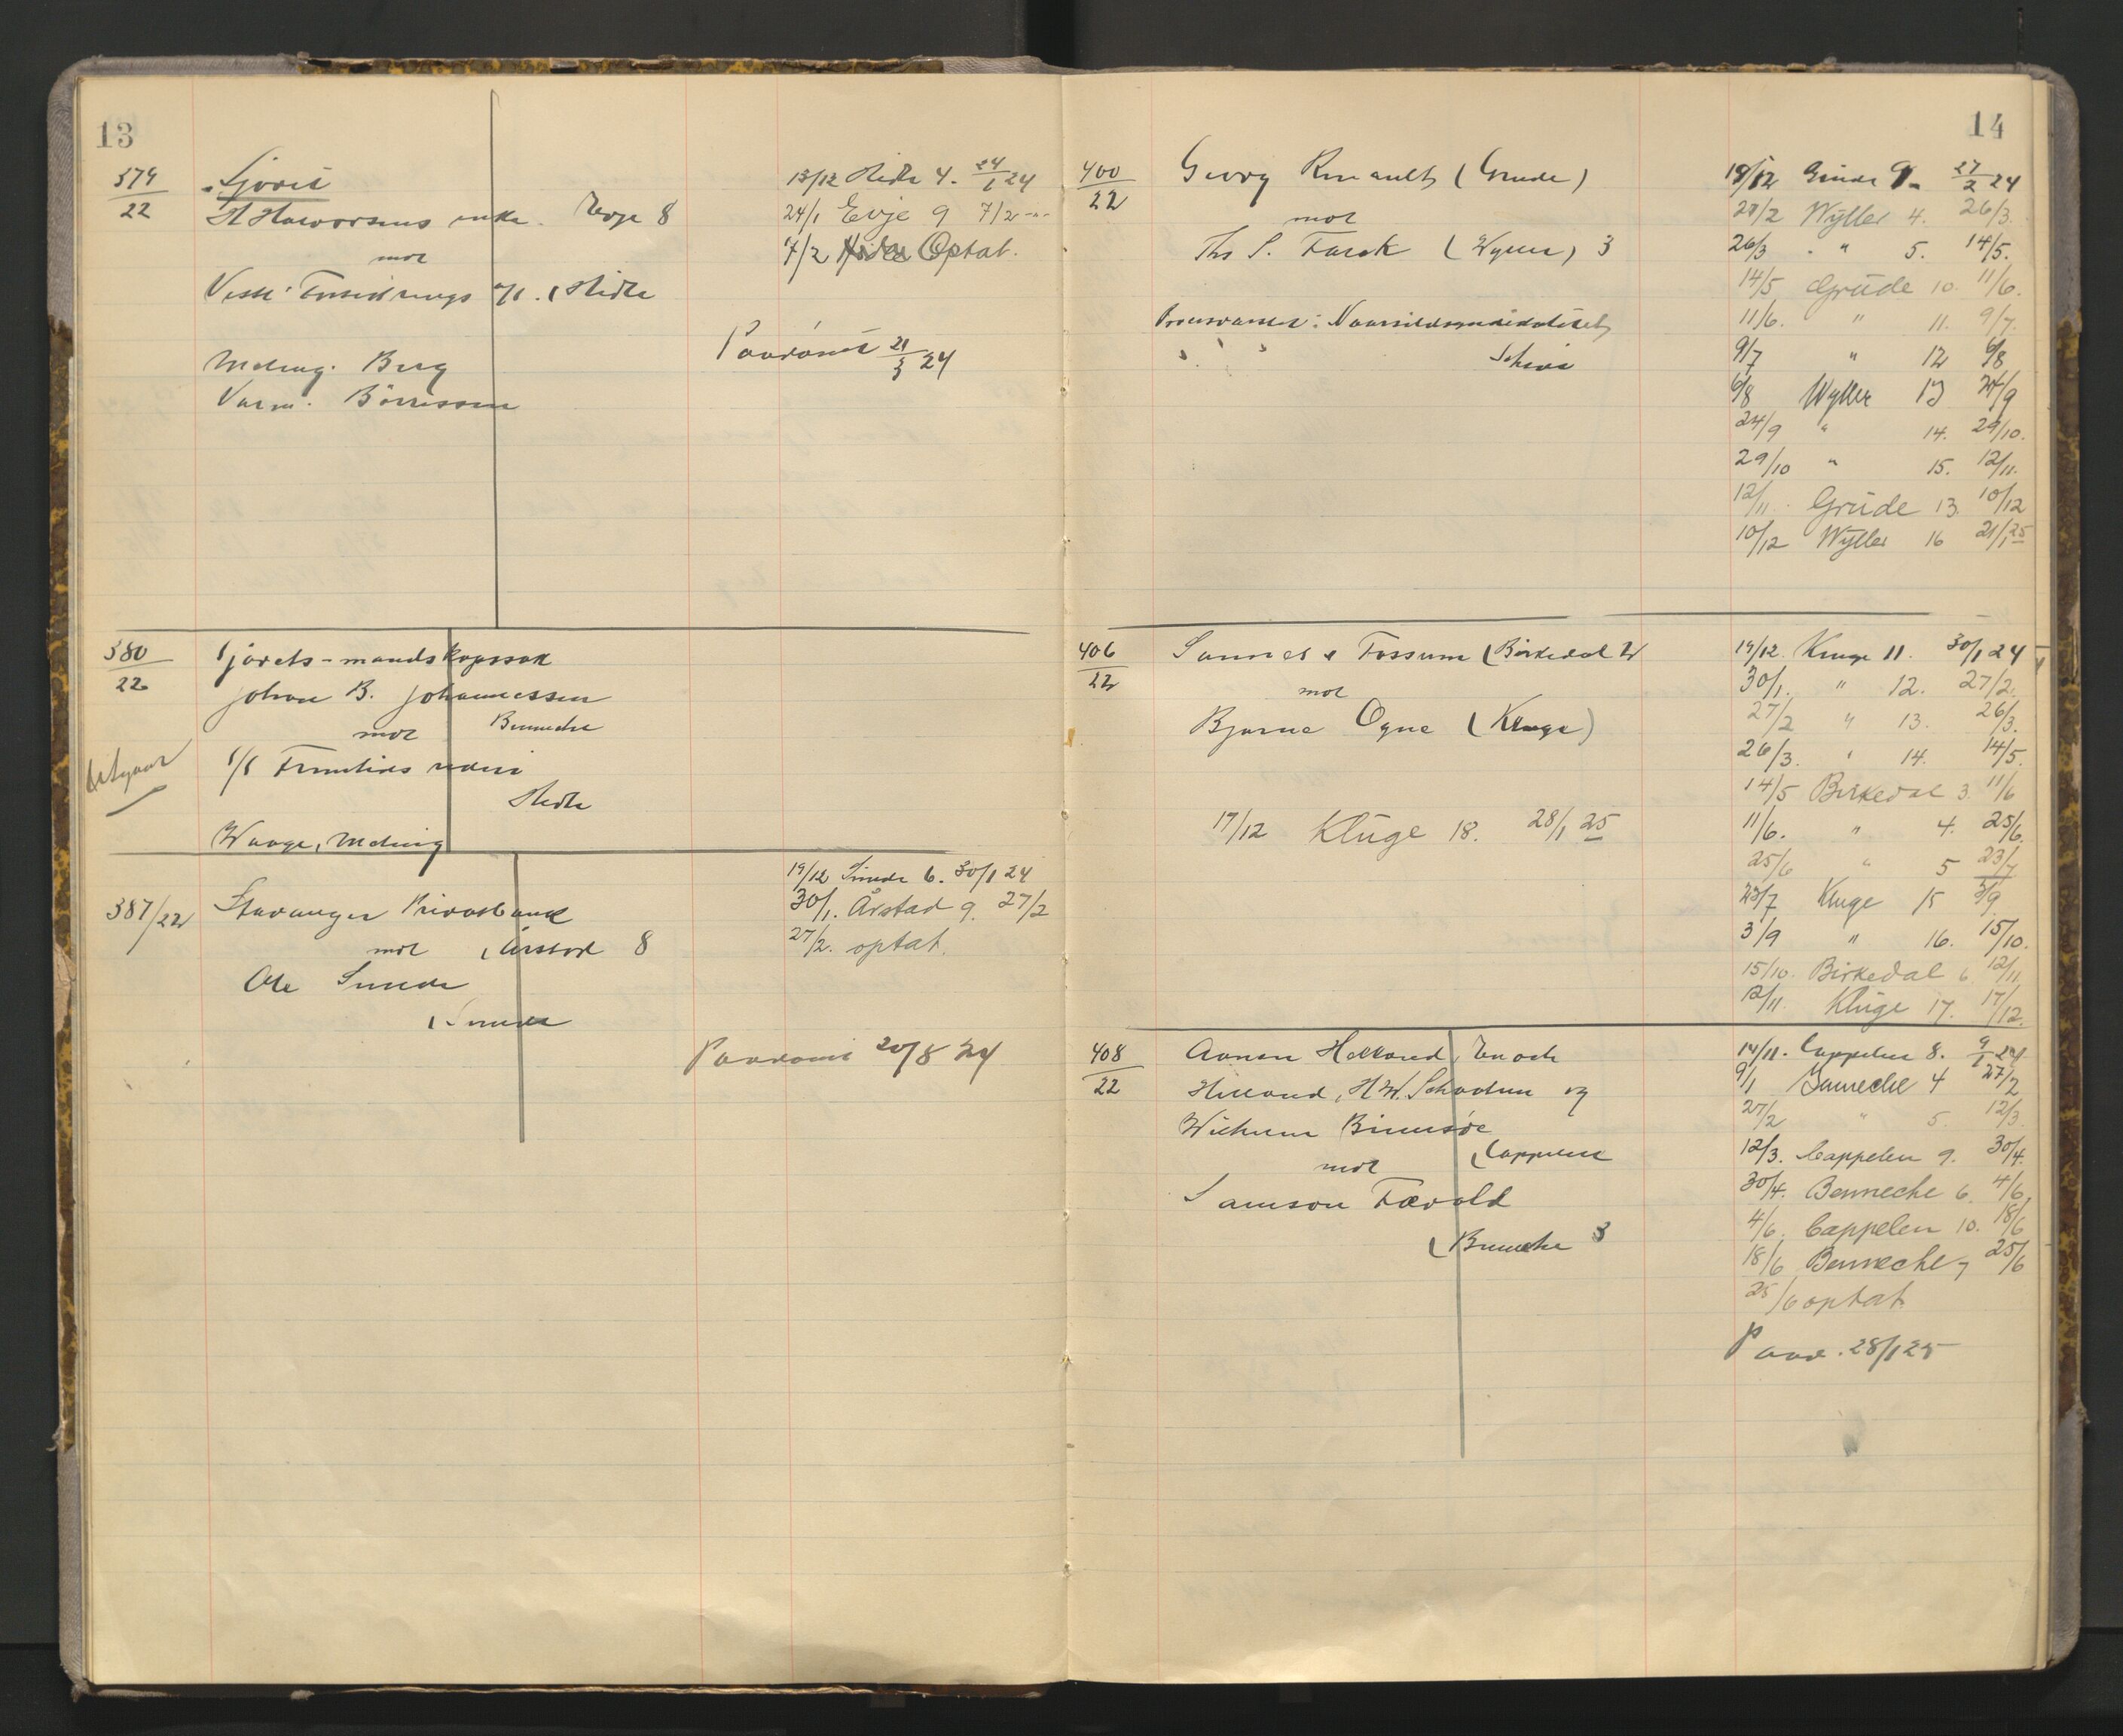 13
379
22
Sjøret
mot
Evje 8
13/12 Hidle 4. 24/1 24
24/1 Evje 9 7/2 -"-
7/2 Optat.
Paadømt 21/3 24
Meling. Berg
Varm. Børresen
380
22
Sjørets-mandskapssak
Johan B. Johannessen
mot Benneche
Hidle
Waage, Meling
387/22
Stavanger Privatbank
mot (Årstad 8
Ole Sunde
(Sunde
19/12 Sunde 6. 30/1 24
30/1. Årstad 9. 27/2
27/2. optat.
Paadømt 20/8 24
14
400
22
Georg Renault (Grude)
mot
Ths S. Farck (Wyller) 3
18/12 Grude 9. 27/2 24
27/2 Wyller 4. 26/3.
26/3 " 5. 14/5.
14/5 Grude 10. 11/6.
11/6. " 11. 9/7.
9/7 " 12 6/8
6/8 Wyller 13 24/9
24/9 " 14. 29/10.
29/10 " 15. 12/11.
12/11. Grude 13. 10/12
10/12 Wyller 16 21/1 25
406
22
Sannes & Fossum (Birkedal 2
mot
Bjarne Ogne (Kluge)
17/12 Kluge 18. 28/1 25
19/12. Kluge 11. 30/1 24
30/1. " 12. 27/2.
27/2 " 13. 26/3.
26/3. " 14. 14/5.
14/5 Birkedal 3. 11/6
11/6. " 4. 25/6.
25/6 " 5 23/7
23/7 Kluge 15 3/9
3/9 " 16. 15/10.
15/10. Birkedal 6 12/11
12/11. Kluge 17. 17/12.
408
22
Helland, H.W. Schadun og
mot (Cappelen
Samson Tævold
(Benneche 3
14/11. Cappelen 8. 9/1 24
9/1 Bennecke 4 27/2
27/2 " 5. 12/3.
12/3. Cappelen 9. 30/4.
30/4. Benneche 6. 4/6.
4/6. Cappelen 10. 18/6
18/6 Benneche 7 25/6
25/6 optat.
Paad. 28/1 25